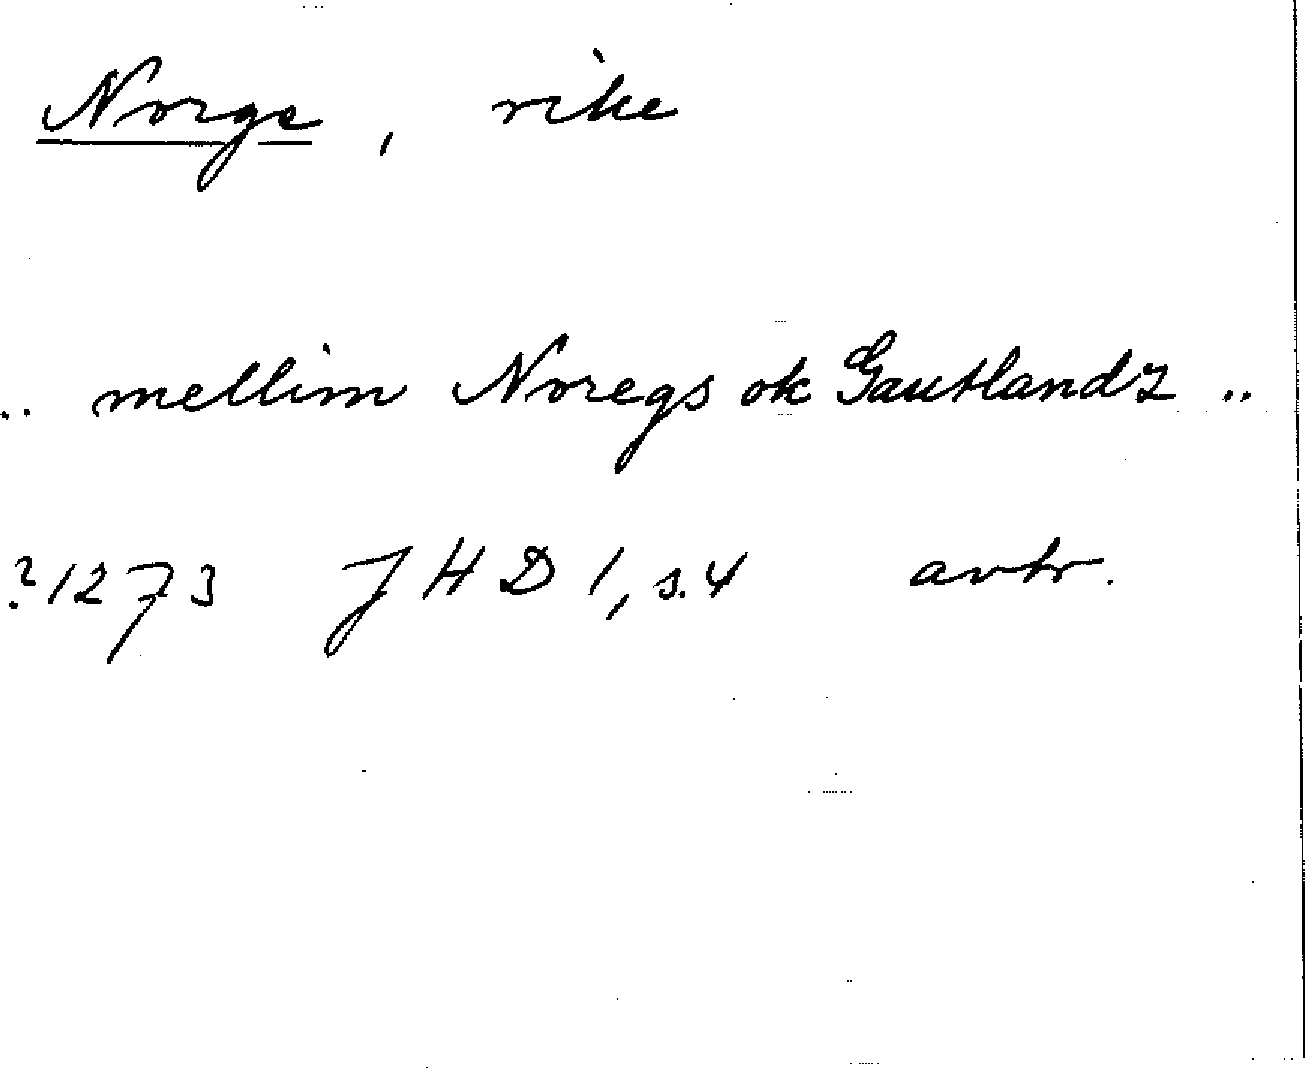 Norge, rike
.. mellim Noregs ok Gautlandz ..
?1273 JHD 1, s. 4 avtr.